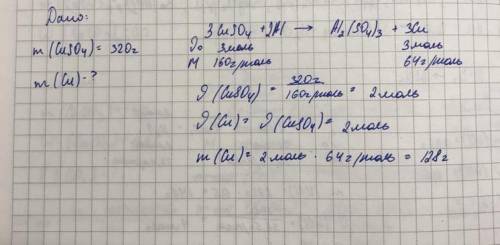 Дано:
m(CuSO4) = 320г
m(Cu) - ?
3CuSO4 + 2Al → Al2(SO4)3 + 3Cu
ν 3моль 3моль
M 160г/моль 64г/моль
ν(CuSO4) = 320г / 160г/моль = 2моль
ν(Cu) = ν(CuSO4) = 2моль
m(Cu) = 2моль · 64г/моль = 128г